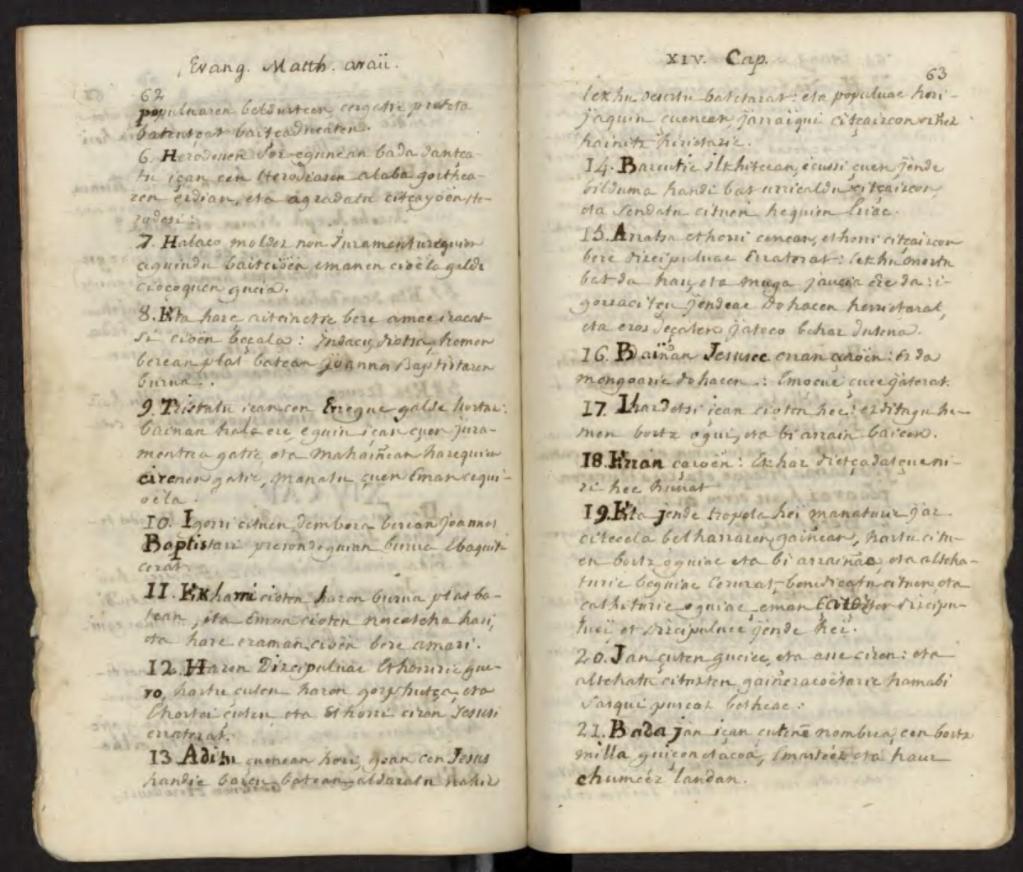 Evang. Matth. araii.
62
populuaren beldurteen cergatic profeta
batentçat baitçaducaten.
6. Herodesen Sor egunean bada dantça-
tu içan cen Herodiasen alaba gorthea-
ren erdian, eta agradatu citçayöen He-
rodesi:
7. Halaco moldez non Juramenturequin
aguindu baitcioën emanen cioëla galde
cioçoquen gucia.
8. Eta hare aitcinetic bere amac iracat-
si cioën beçala: Indaçu, diotsa, hemen
berean plat batean Joannes Baptistaren
burua.
9. Tristatu içan cen Erregue galde hortaz:
bainan hala ere, eguin içan çuen jura-
mentua gatic, eta mahaiñean harequin
cirenen gatic, manatu çuen Eman cequi-
oëla.
10. Igorri cituen dembora berean Joannes
Baptistari presondeguian burua Ebaquit-
cerat.
11. Ekharri cioten haren burua plat ba-
tean, eta Eman cioten nescatcha hari,
eta hare eraman cioën bere amari.
12. Haren Discipuluac Ethorriric gue-
ro, hartu çuten haren gorphutça, eta
Ehortci çuten eta Ethorri ciren Jesusi
erraterat.
13 Aditu çuenean hori, joan cen Jesus
handic barcu batean aldaratu nahiz
XIV. Cap.
63
lekhu desertu batetarat: eta populuac hori
jaquin çuenean jarraiqui citçaizcon oihez
hainitz hiritaric.
14. Barcutic ilkhitcean, icussi çuen jende
bilduma handi bat urricaldu citçaizcon,
eta Sendatu cituen hequien Eriac.
15. Arratsa ethorri cenean, ethorri citçaizcon
bere discipuluac Erraterat: lekhu mortu
bat da hau, eta muga jauzia ere da: i-
gorracitçu jendeac Dohacen herrietarat,
eta eros deçaten jateco behar dutena.
16. Bainan Jesusec erran çaroën: Ez da
mengoaric dohacen: Emocue çuec jaterat.
17. Ihardetsi içan cioten hec: ez ditugu he-
men bortz ogui, eta bi arrain baicen.
18. Erran çaroën: Ekhar dietçadatçue ni-
ri hec hunat
19. Eta jende tropela hei manatuic jar
citecela belharraren gainean, hartu citu-
en bortz oguiac eta bi arrainac, eta altcha-
turic beguiac Cerurat, benedicatu cituen, eta
çathituric oguiac eman discipu-
luei et discipuluec jende hei.
20. Jan çuten guciec, eta asse ciren: eta
altchatu cituzten gaineracoetaric hamabi
Sasqui puscaz betheac:
21. Bada jan içan çutene nombrea, cen bortz
milla guiçonetacoa, Emaztéez eta haur
chumeéz landan.